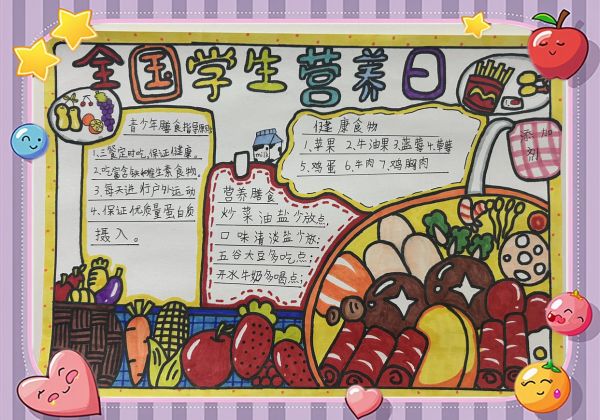 全国学生营养日
青少年膳食指导原则
1.三餐定时吃,保证健康。
2.吃富含铁和维生素食物。
3.每天进行户外运动
4.保证优质量蛋白质
摄入。
milk
营养膳食
炒菜油盐少放点,
口味清淡盐少放;
五谷大豆多吃点;
开水牛奶多喝点;
健康食物
1.苹果 2.牛油果 3.菠萝 4.草莓
5.鸡蛋 6.牛肉 7.鸡胸肉
添加剂